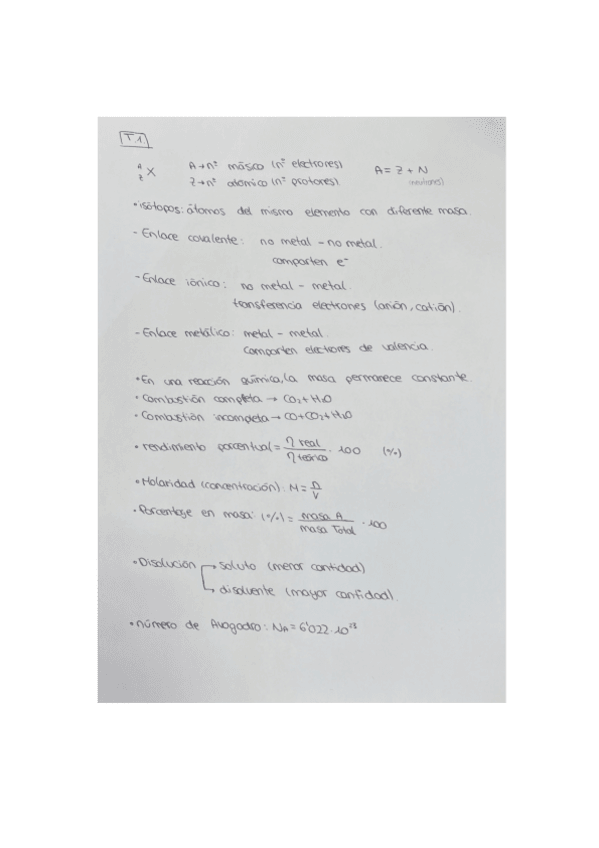 T.1
A
Z X
A→nº másico (nº electrones)
Z→nº atómico (nº protones)
A = Z + N
(neutrones)
• isótopos: átomos del mismo elemento con diferente masa.
- Enlace covalente: no metal - no metal.
comparten e⁻
- Enlace iónico: no metal - metal.
transferencia electrones (anión, catión).
- Enlace metálico: metal - metal.
comparten electrones de valencia.
• En una reacción química, la masa permanece constante.
• Combustión completa → CO₂ + H₂O
• Combustión incompleta → CO + CO₂ + H₂O
• rendimiento porcentual = η real / η teórico · 100 (%)
• Molaridad (concentración): M = n / V
• Porcentaje en masa: (%) = masa A / masa Total · 100
• Disolución → soluto (menor cantidad)
→ disolvente (mayor cantidad).
• número de Avogadro: NA = 6'022 · 10²³